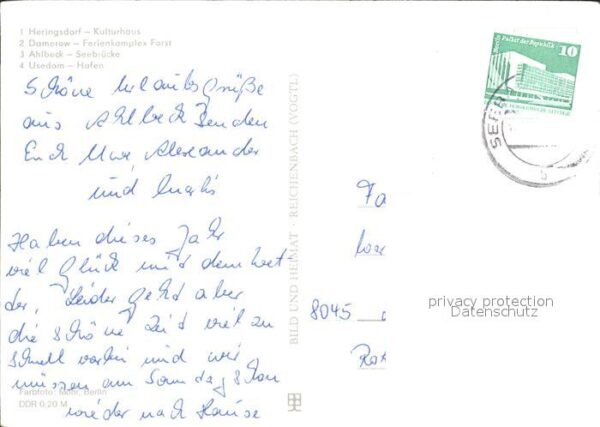 1 Heringsdorf – Kulturhaus
2 Damerow – Ferienkomplex Forst
3 Ahlbeck – Seebrücke
4 Usedom – Hafen
Schöne Urlaubsgrüße
aus Ahlbeck senden
Euch Uwe Alexander
und
Haben dieses Jahr
viel Glück mit dem Wet-
ter, Leider geht aber
die schöne Zeit viel zu
schnell vorbei und wir
müssen am Sonntag schon
wieder nach Hause
Farbfoto: Mohr, Berlin
DDR 0,20 M
BILD UND HEIMAT · REICHENBACH (VOGTL)
Berlin Palast der Republik
10
SEEB
Fa
8045
privacy protection
Datenschutz